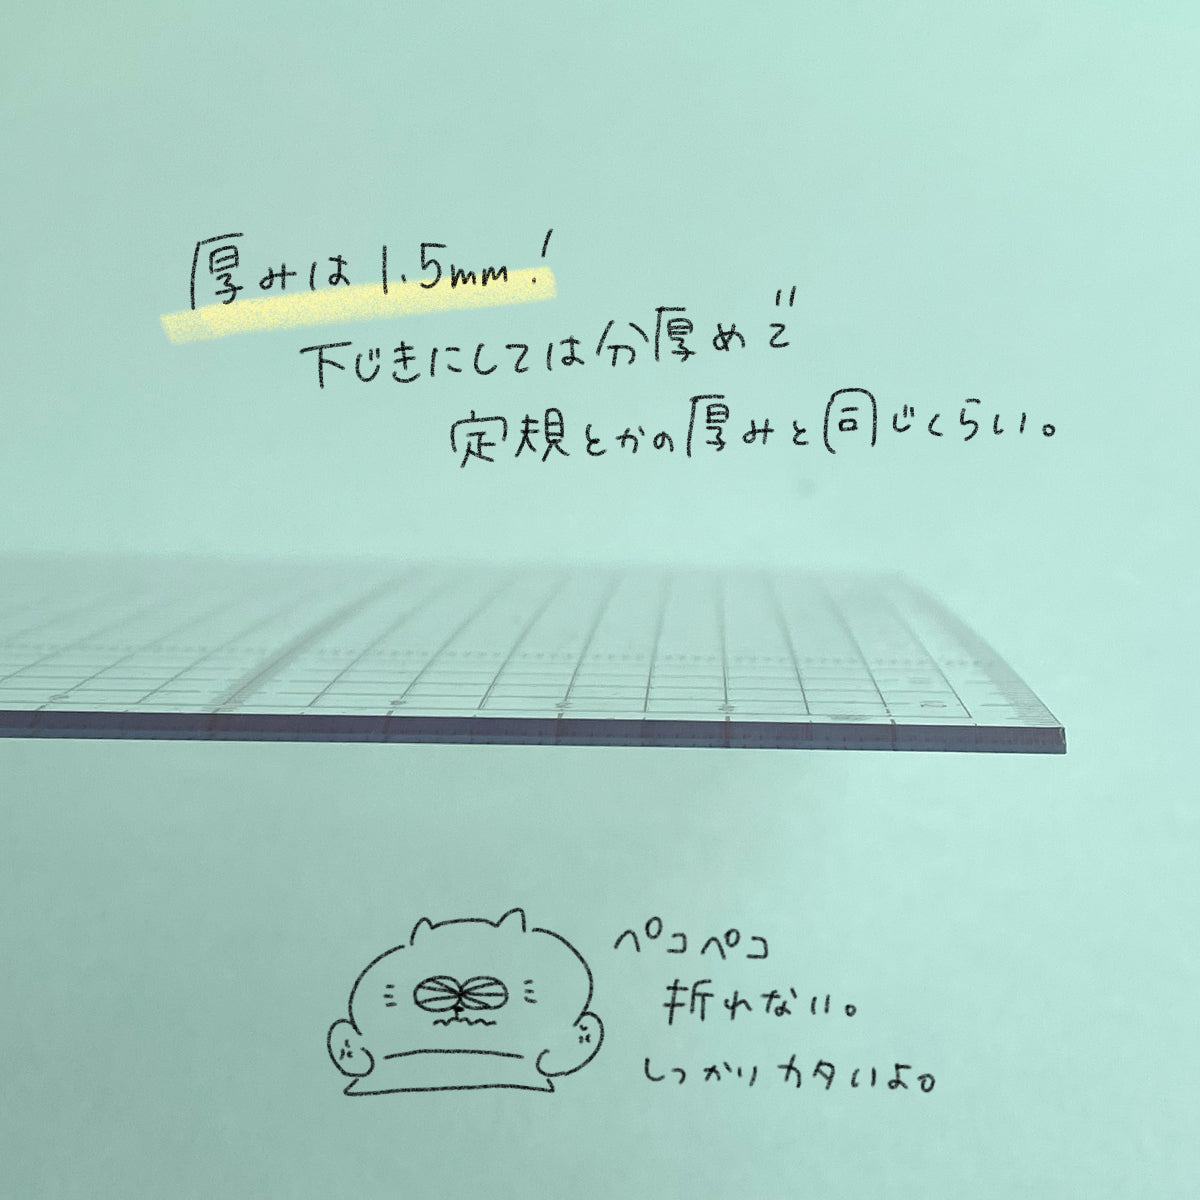 厚みは1.5mm!
下じきにしては分厚めで
定規とかの厚みと同じくらい。
ペコペコ
折れない。
しっかりカタいよ。